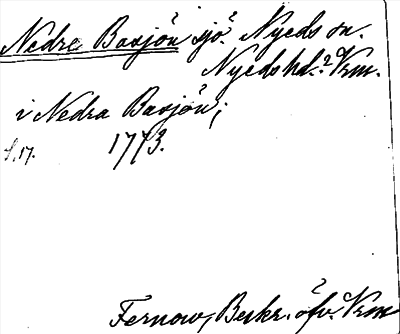 Nedre Basjön sjö. Nyeds sn.
Nyeds hd. Vrm.
i Nedra Basjön;
S. 17. 1773.
Fernow, Beskr. öfv. Vrm